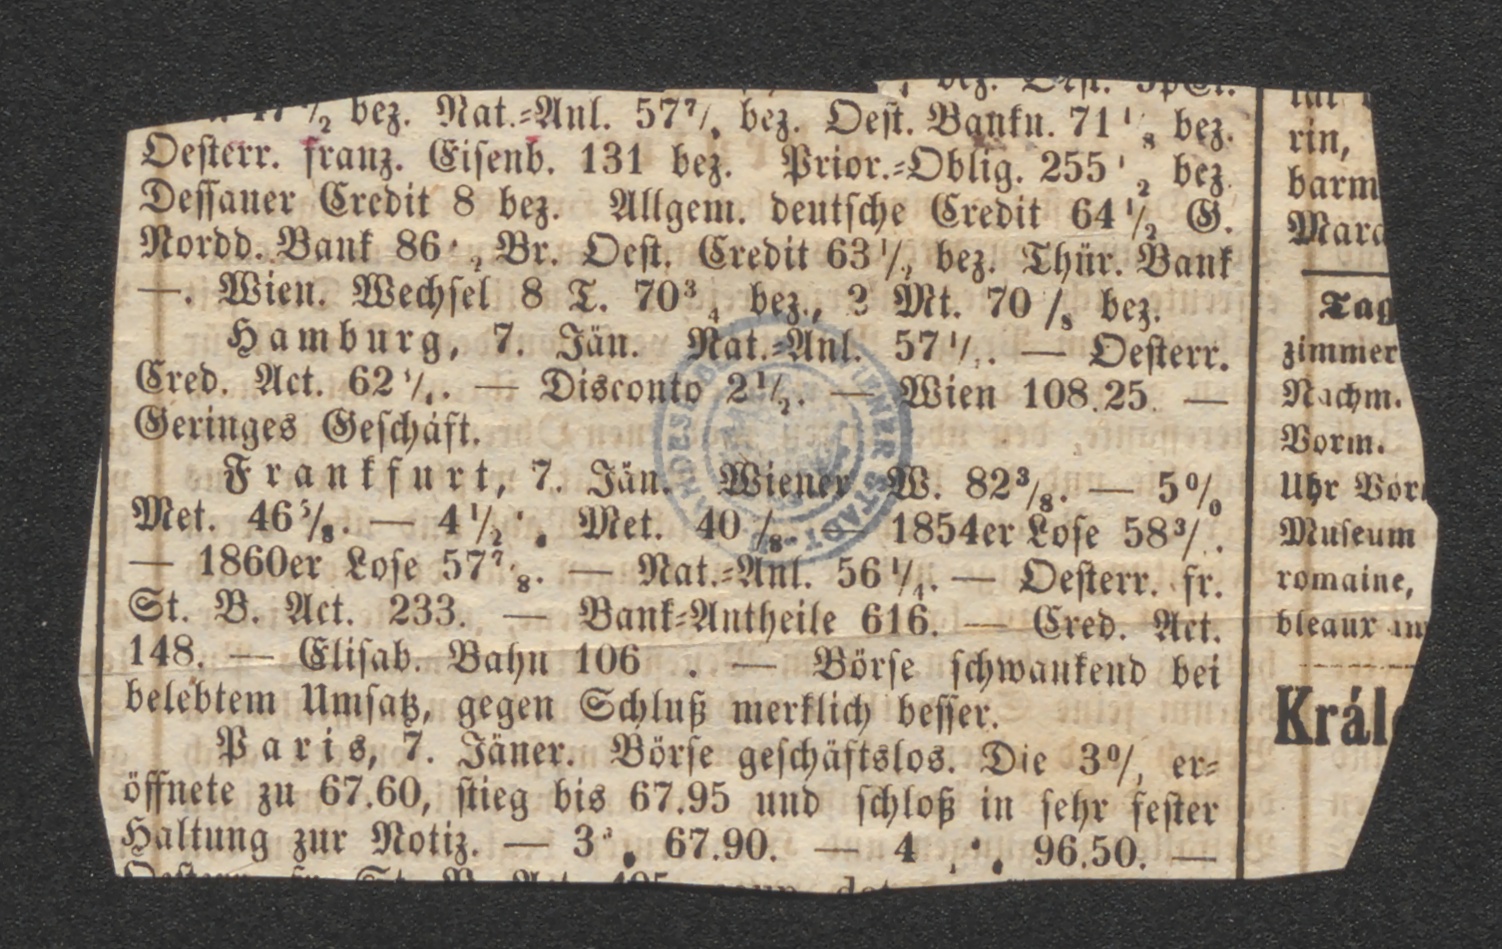 bez. Nat.=Anl. 57⅞ bez. Oest. Bankn. 71⅛ bez.
Oesterr. franz. Eisenb. 131 bez. Prior.=Oblig. 255½ bez.
Dessauer Credit 8 bez. Allgem. deutsche Credit 64½ G.
Nordd. Bank 86 Br. Oest. Credit 63½ bez. Thür. Bank
—. Wien. Wechsel 8 T. 70¾ bez., 2 Mt. 70 bez.
Hamburg, 7. Jän. Nat.=Anl. 57 — Oesterr.
Cred. Act. 62 — Disconto 2½. — Wien 108.25. —
Geringes Geschäft.
Frankfurt, 7. Jän. Wiener W. 82⅜. — 5%
Met. 46⅝. — 4½ Met. 40 — 1854er Lose 58
— 1860er Lose 57⅞. — Nat.=Anl. 56¼. — Oesterr. fr.
St. B. Act. 233. — Bank=Antheile 616. — Cred. Act.
148. — Elisab. Bahn 106 . — Börse schwankend bei
belebtem Umsatz, gegen Schluß merklich besser.
Paris, 7. Jäner. Börse geschäftslos. Die 3% er=
öffnete zu 67.60, stieg bis 67.95 und schloß in sehr fester
Haltung zur Notiz. — 3% 67.90. — 4 96.50. —
rin,
barm
Mara
Tag
zimmer
Nachm.
Vorm.
Uhr Vor
Museum
romaine,
bleaux
Král